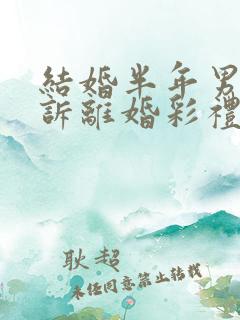 結婚半年男
訴離婚彩禮
耿超
未經同意禁止轉載